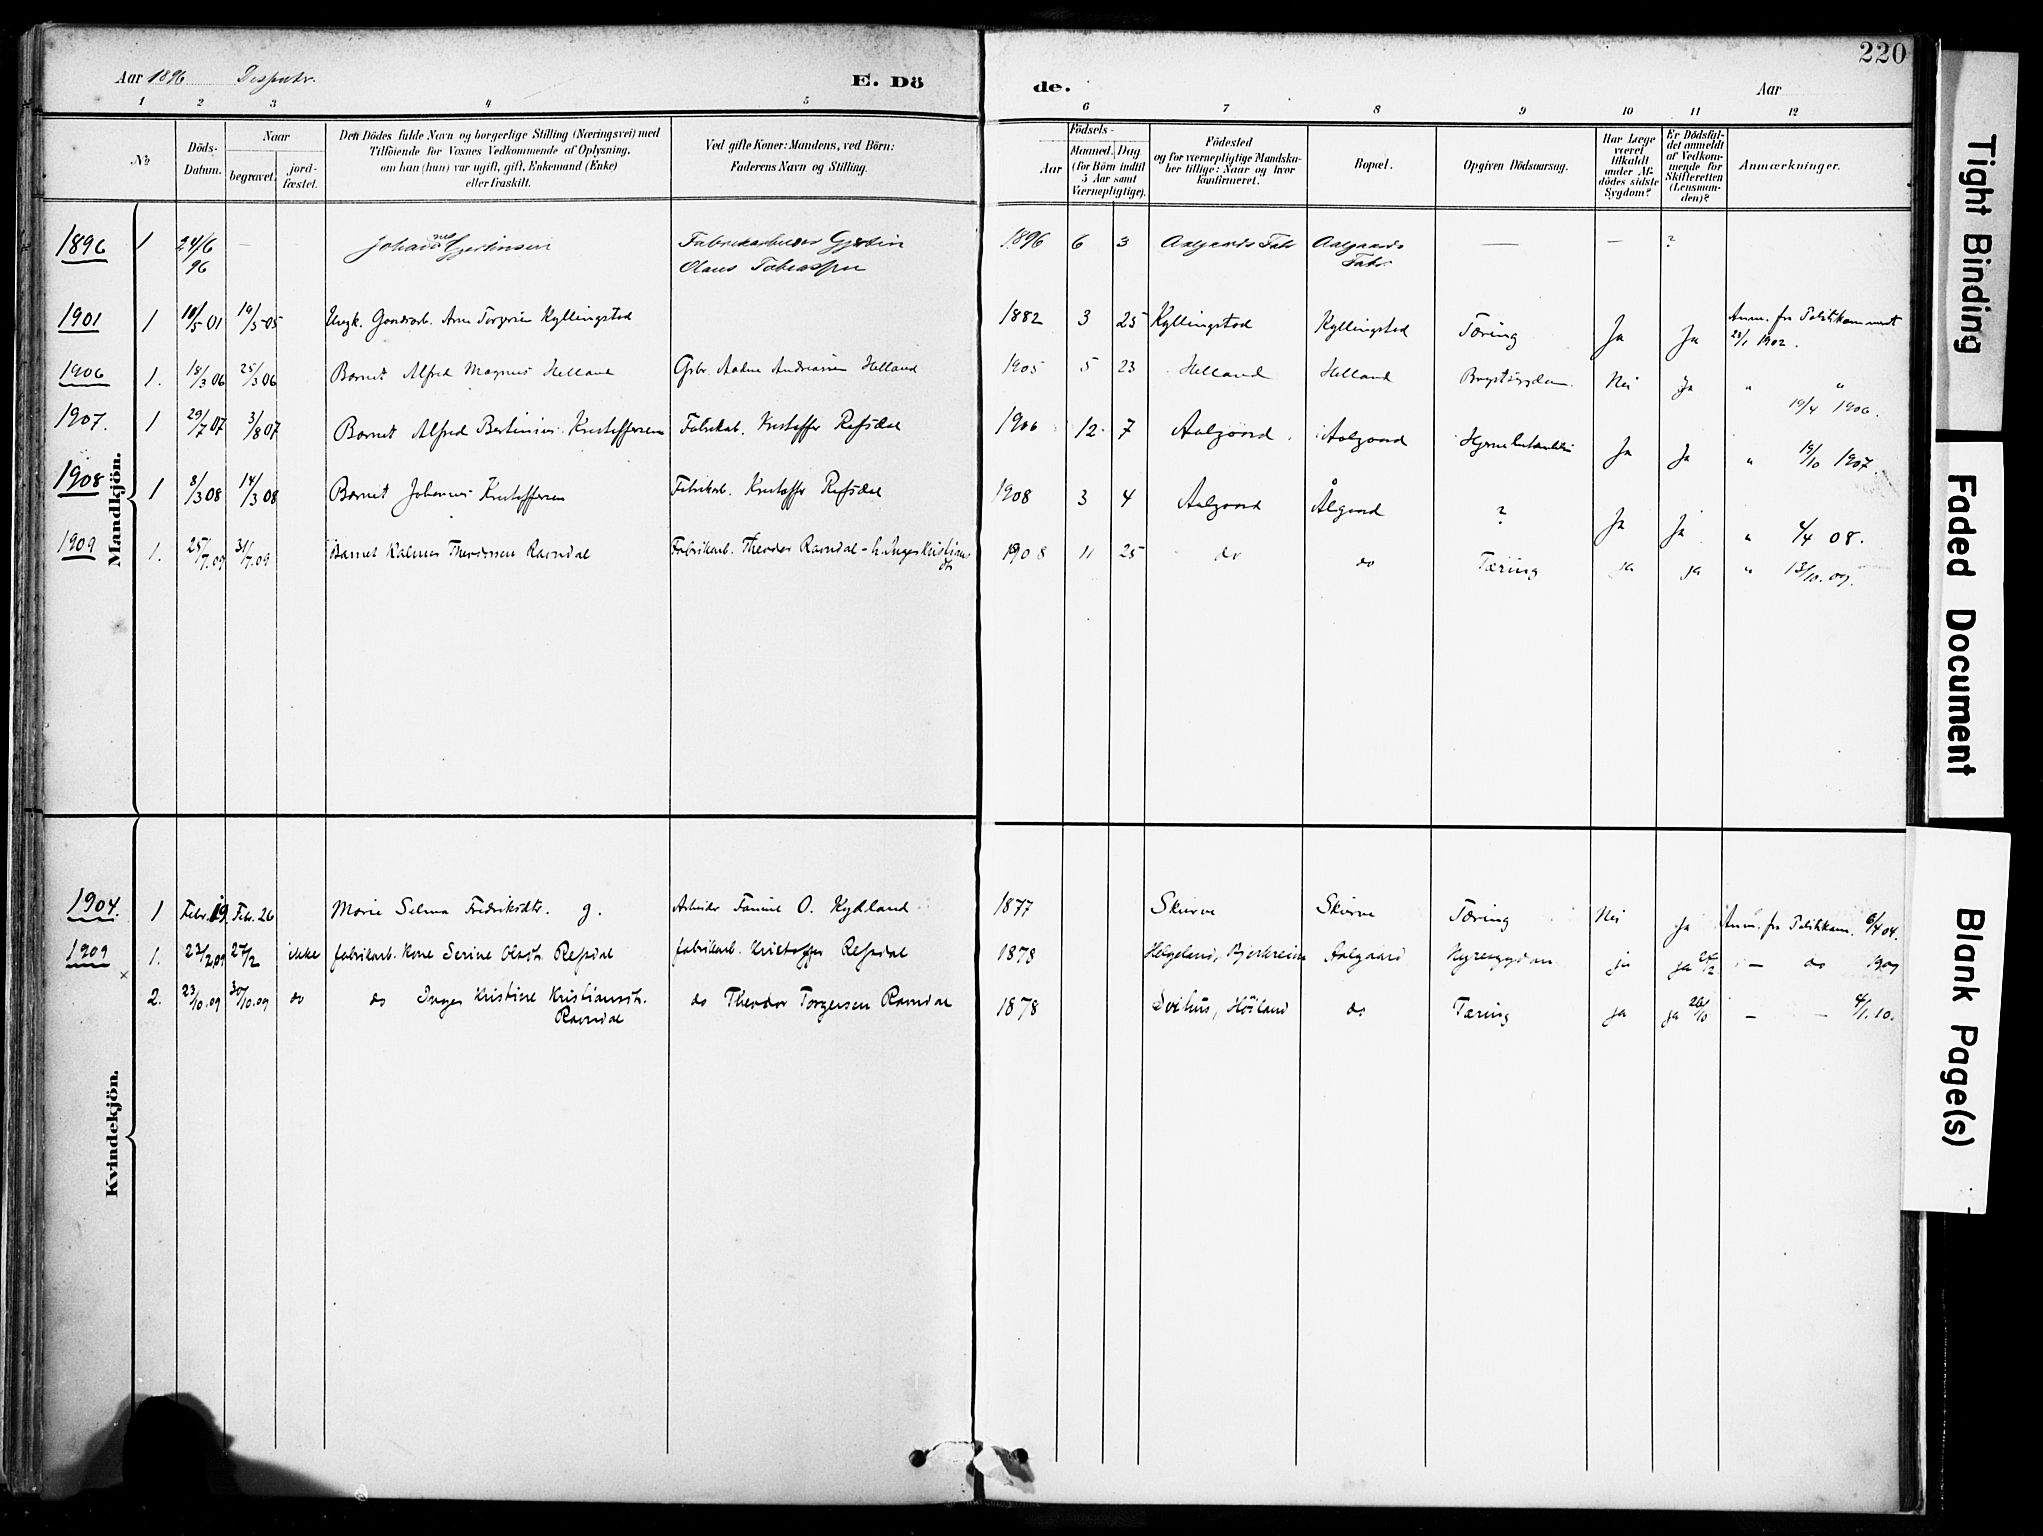 Aar 1896
E. Dö
de.
Aar
220
1 2 3 4 5 6 7 8 9 10 11 12
No
Döds-Datum.
Naar
begravet.
jord-fæstet.
Den Dödes fulde Navn og borgerlige Stilling (Næringsvei) med
Tilföiende for Voxnes Vedkommende af Oplysning.
om han (hun) var ugift, gift, Enkemand (Enke)
eller fraskilt.
Ved gifte Koner: Mandens, ved Börn:
Faderens Navn og Stilling.
Födsels-
Aar
Maaned. Dag.
(for Börn indtil
5 Aar samt
Værnepligtige).
Födested
og for værnepligtige Mandska-
ber tillige: Naar og hvor
konfirmeret.
Bopæl.
Opgiven Dödsaarsag.
Har Læge
været
tilkaldt
under Af-
dödes sidste
Sygdom?
Er Dödsfal-
det anmeldt
af Vedkom-
mende for
Skifteretten
(Lensman-
den)?
Anmærkninger.
Mandkjön.
1896 1 24/6 96 — — Johannes Gjertinsen Fabrikarbeider Gjertin 1896 6 3 Aalgaards Fabr Aalgaards — — ?
Olaus Tobiassen Fabr.
1901 1 10/5 01 19/5 05 Ungk. Arne Kyllingstad 1882 3 25 Kyllingstad Kyllingstad Tæring Ja Ja Anm. fra Politikammeret
23/1 1902.
1906 1. 18/3 06 25/3 06 Barnet Alfred Magnus Helland Gbr. Andreassen Helland 1905 5 23 Helland Helland Brystsygdom. Nei Ja " "
19/4 1906.
1907. 1 29/7 07 3/8 07 Barnet Alfred Bertinius Kristoffersen Fabrikab. Kristoffer Refsdal 1906 12 7 Aalgaard. Aalgaard Ja Ja " 19/10 1907.
1908 1 8/3 08 14/3 08 Barnet Johannes Kristoffersen Fabrikarb. Kristoffer Refsdal 1908 3 4 Aalgaard Ålgaard ? Ja Ja " 4/4 08.
1909 1. 25/7.09 31/7.09 Barnet Kalmer Theodorsen Ravndal Fabrikarb. Theodor Ravndal - h. Inger Kristians
dtr
1908 11 25 do do Tæring ja ja " 13/10.09.
Kvindekjön.
1904. 1 Febr. 19 Febr. 26 Marie Selma Fredriksdtr. g. Arbeider O. Kydland 1877 Skurve Skurve Tæring Nei Ja Anm. fra Politikam. 6/4 04.
1909 1. 23/2 09 27/2 ikke fabrikarb. Kone Serine Olsdtr. Refsdal fabrikarb. Kristoffer Refsdal 1878 Helgeland, Bjerkreim Aalgaard ja ja 24/2 — do 1909
2. 23/10.09 30/10.09 do do Inger Kristine Kristiansdtr. do Theodor Torgersen Ravndal 1878 Svihus, Höiland do Tæring ja ja 26/10 — — 4/1.10.
Ravndal
Tight Binding
Faded Document
Blank Page(s)